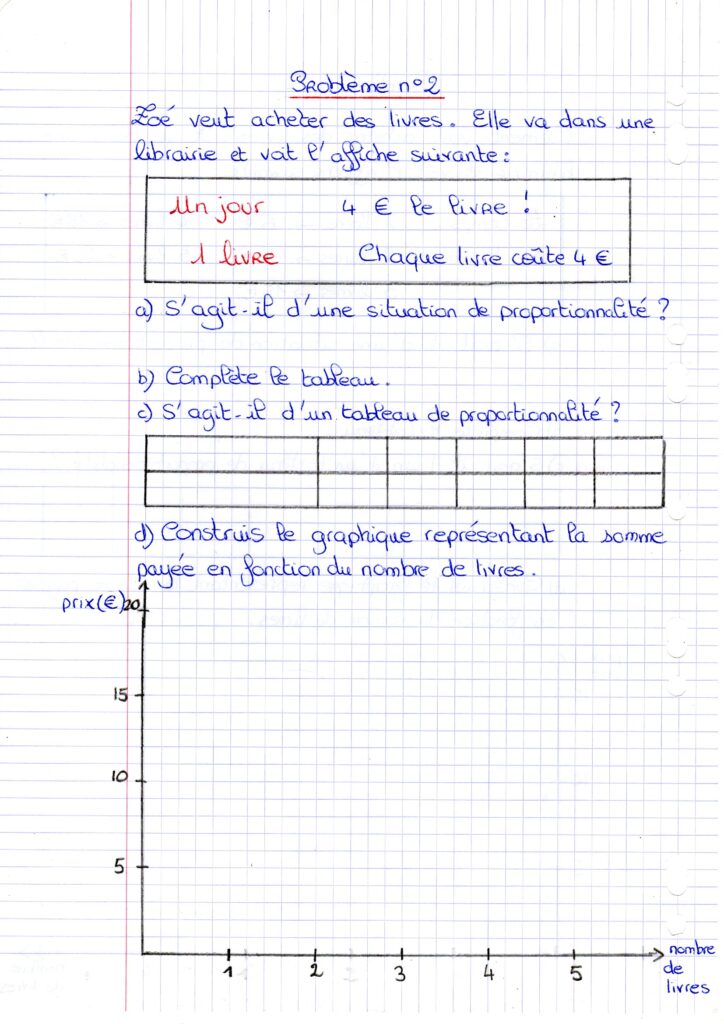 Problème n°2
Zoé veut acheter des livres. Elle va dans une
librairie et voit l'affiche suivante :
Un jour 4 € le livre !
1 livre Chaque livre coûte 4 €
a) S'agit-il d'une situation de proportionnalité ?
b) Complète le tableau.
c) S'agit-il d'un tableau de proportionnalité ?
d) Construis le graphique représentant la somme
payée en fonction du nombre de livres.
prix (€) 20
15
10
5
1 2 3 4 5
nombre
de
livres